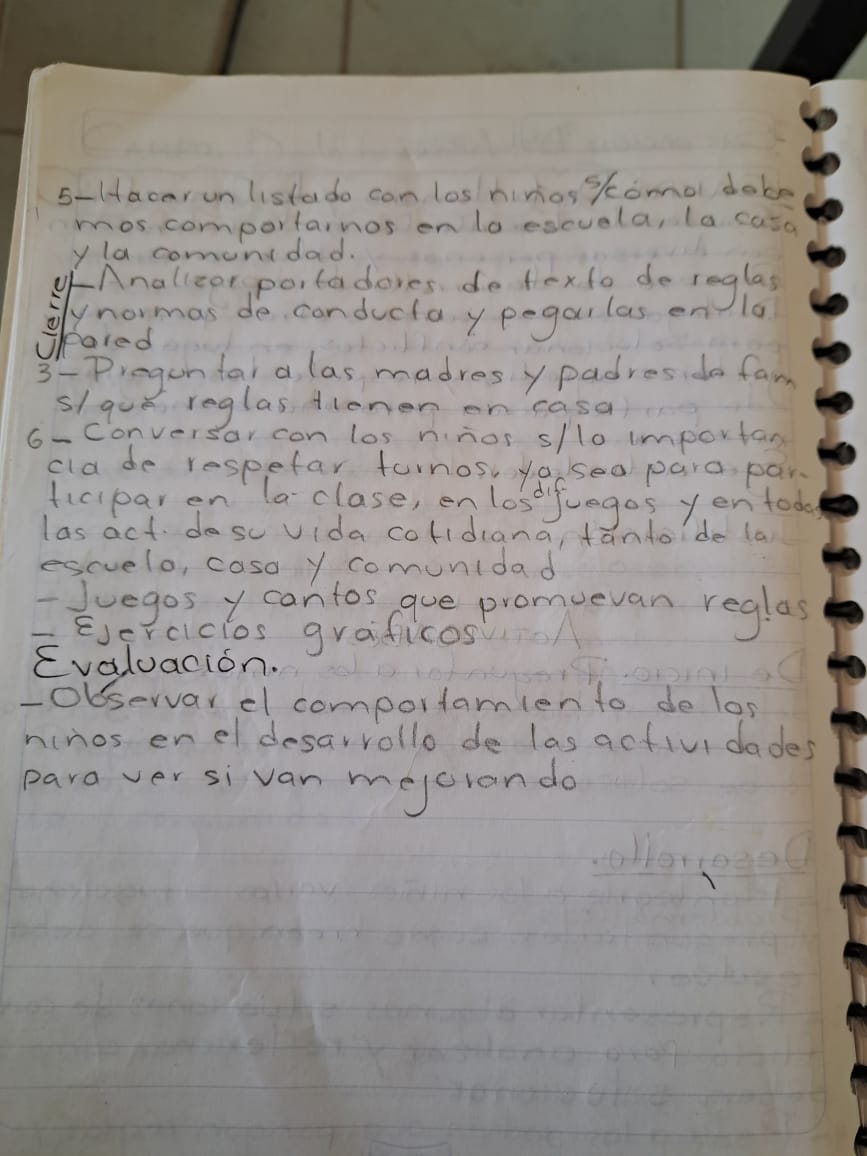 5-Hacer un listado con los niños s/cómo debe
mos comportarnos en la escuela, la casa
y la comunidad.
Cierre
-Analizar portadores de texto de reglas
y normas de conducta y pegarlas en la
pared
3- Preguntar a las madres y padres de fam
s/ qué reglas tienen en casa
6- Conversar con los niños s/lo importan
cia de respetar turnos, ya sea para par-
ticipar en la clase, en los dif. juegos y en todas
las act. de su vida cotidiana, tanto de la
escuela, casa y comunidad
- Juegos y cantos que promuevan reglas
- Ejercicios gráficos
Evaluación.
-Observar el comportamiento de los
niños en el desarrollo de las actividades
para ver si van mejorando